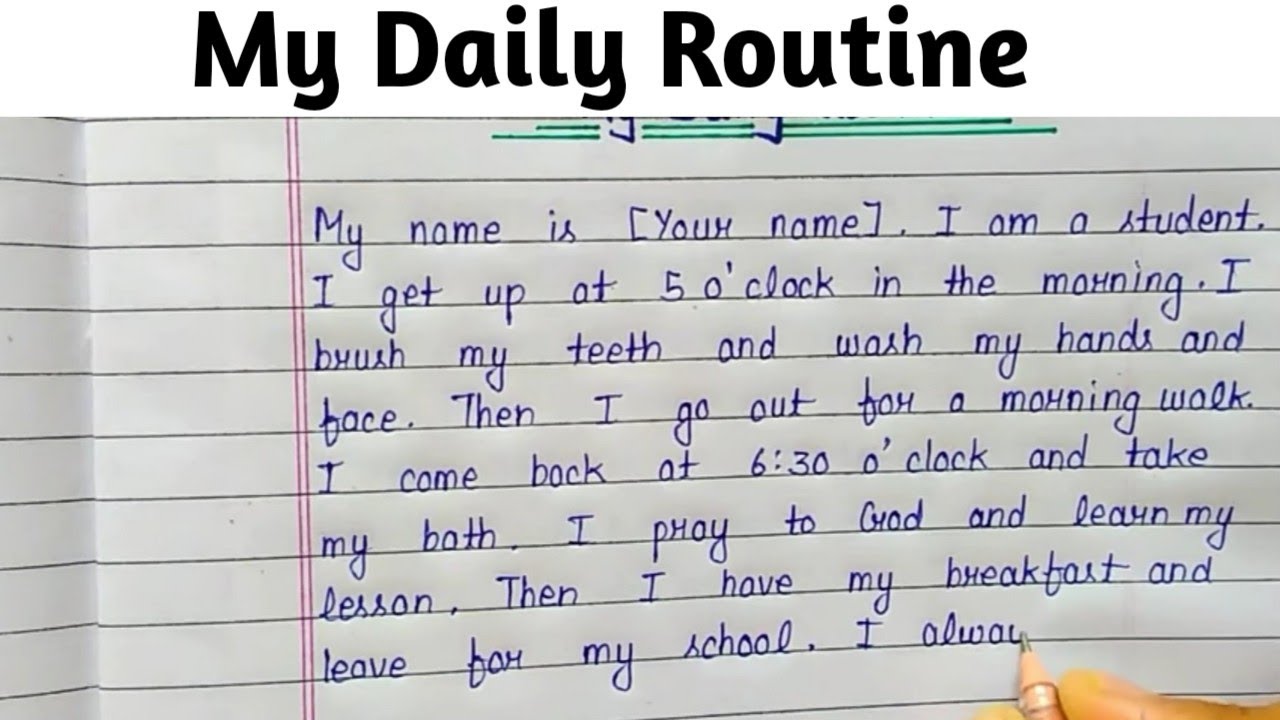 My Daily Routine
My name is [Your name]. I am a student.
I get up at 5 o'clock in the morning. I
brush my teeth and wash my hands and
face. Then I go out for a morning walk.
I come back at 6:30 o'clock and take
my bath. I pray to God and learn my
lesson. Then I have my breakfast and
leave for my school. I alway